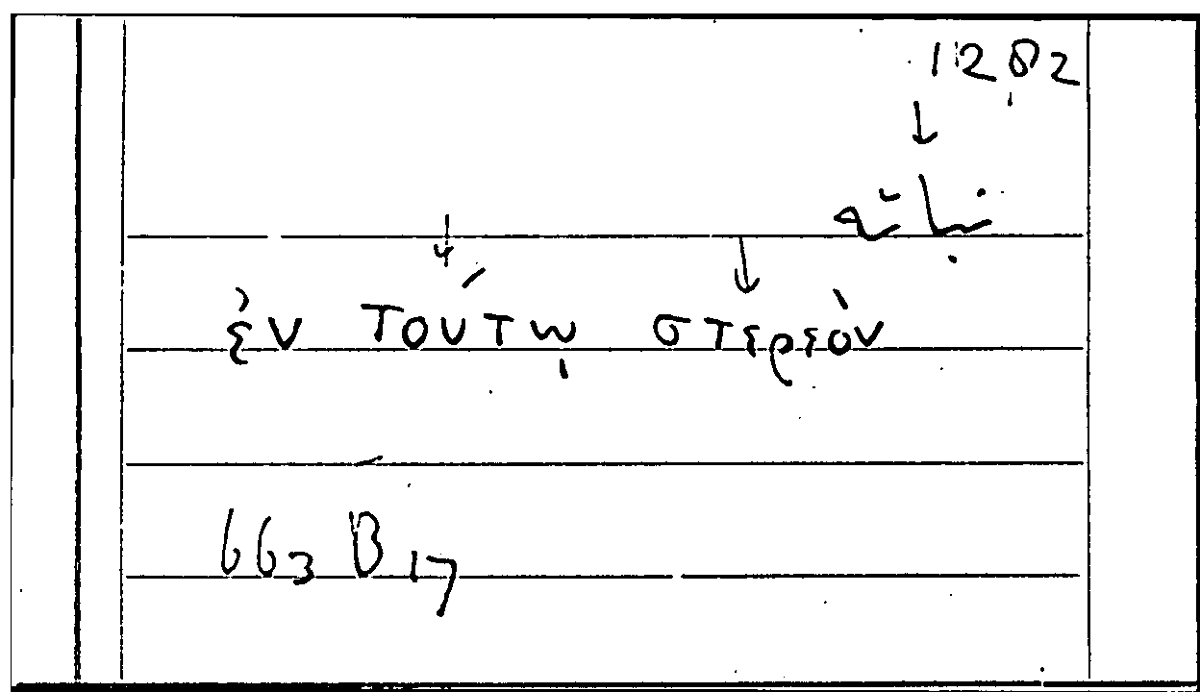 1282
ἐν τούτῳ στερεὸν
663 B 17